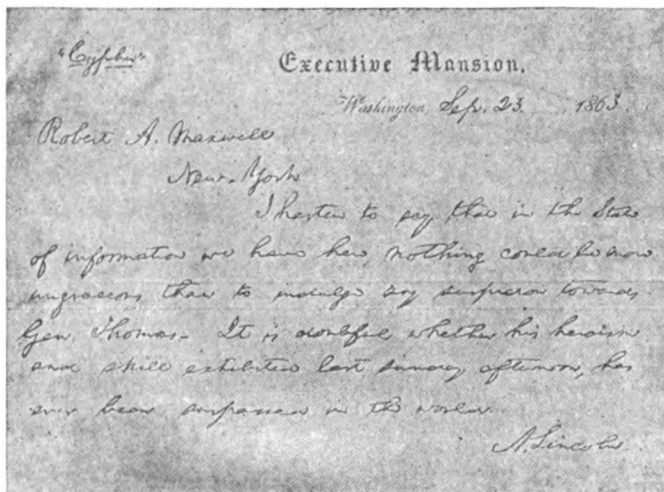 "Cypher"
Executive Mansion,
Washington, Sep. 23. 1863.
Robert A. Maxwell
New-York
I hasten to say that in the State
of information we have here, nothing could be more
ungracious than to indulge any suspicion towards
Gen. Thomas. It is doubtful whether his heroism
and skill exhibited last sunday afternoon, has
ever been surpassed in the world.
A. Lincoln.